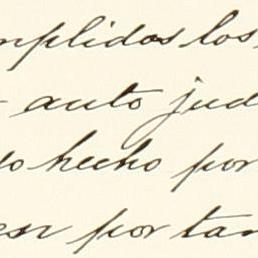 mplidos los
auto jud
do hecho por
en por tan